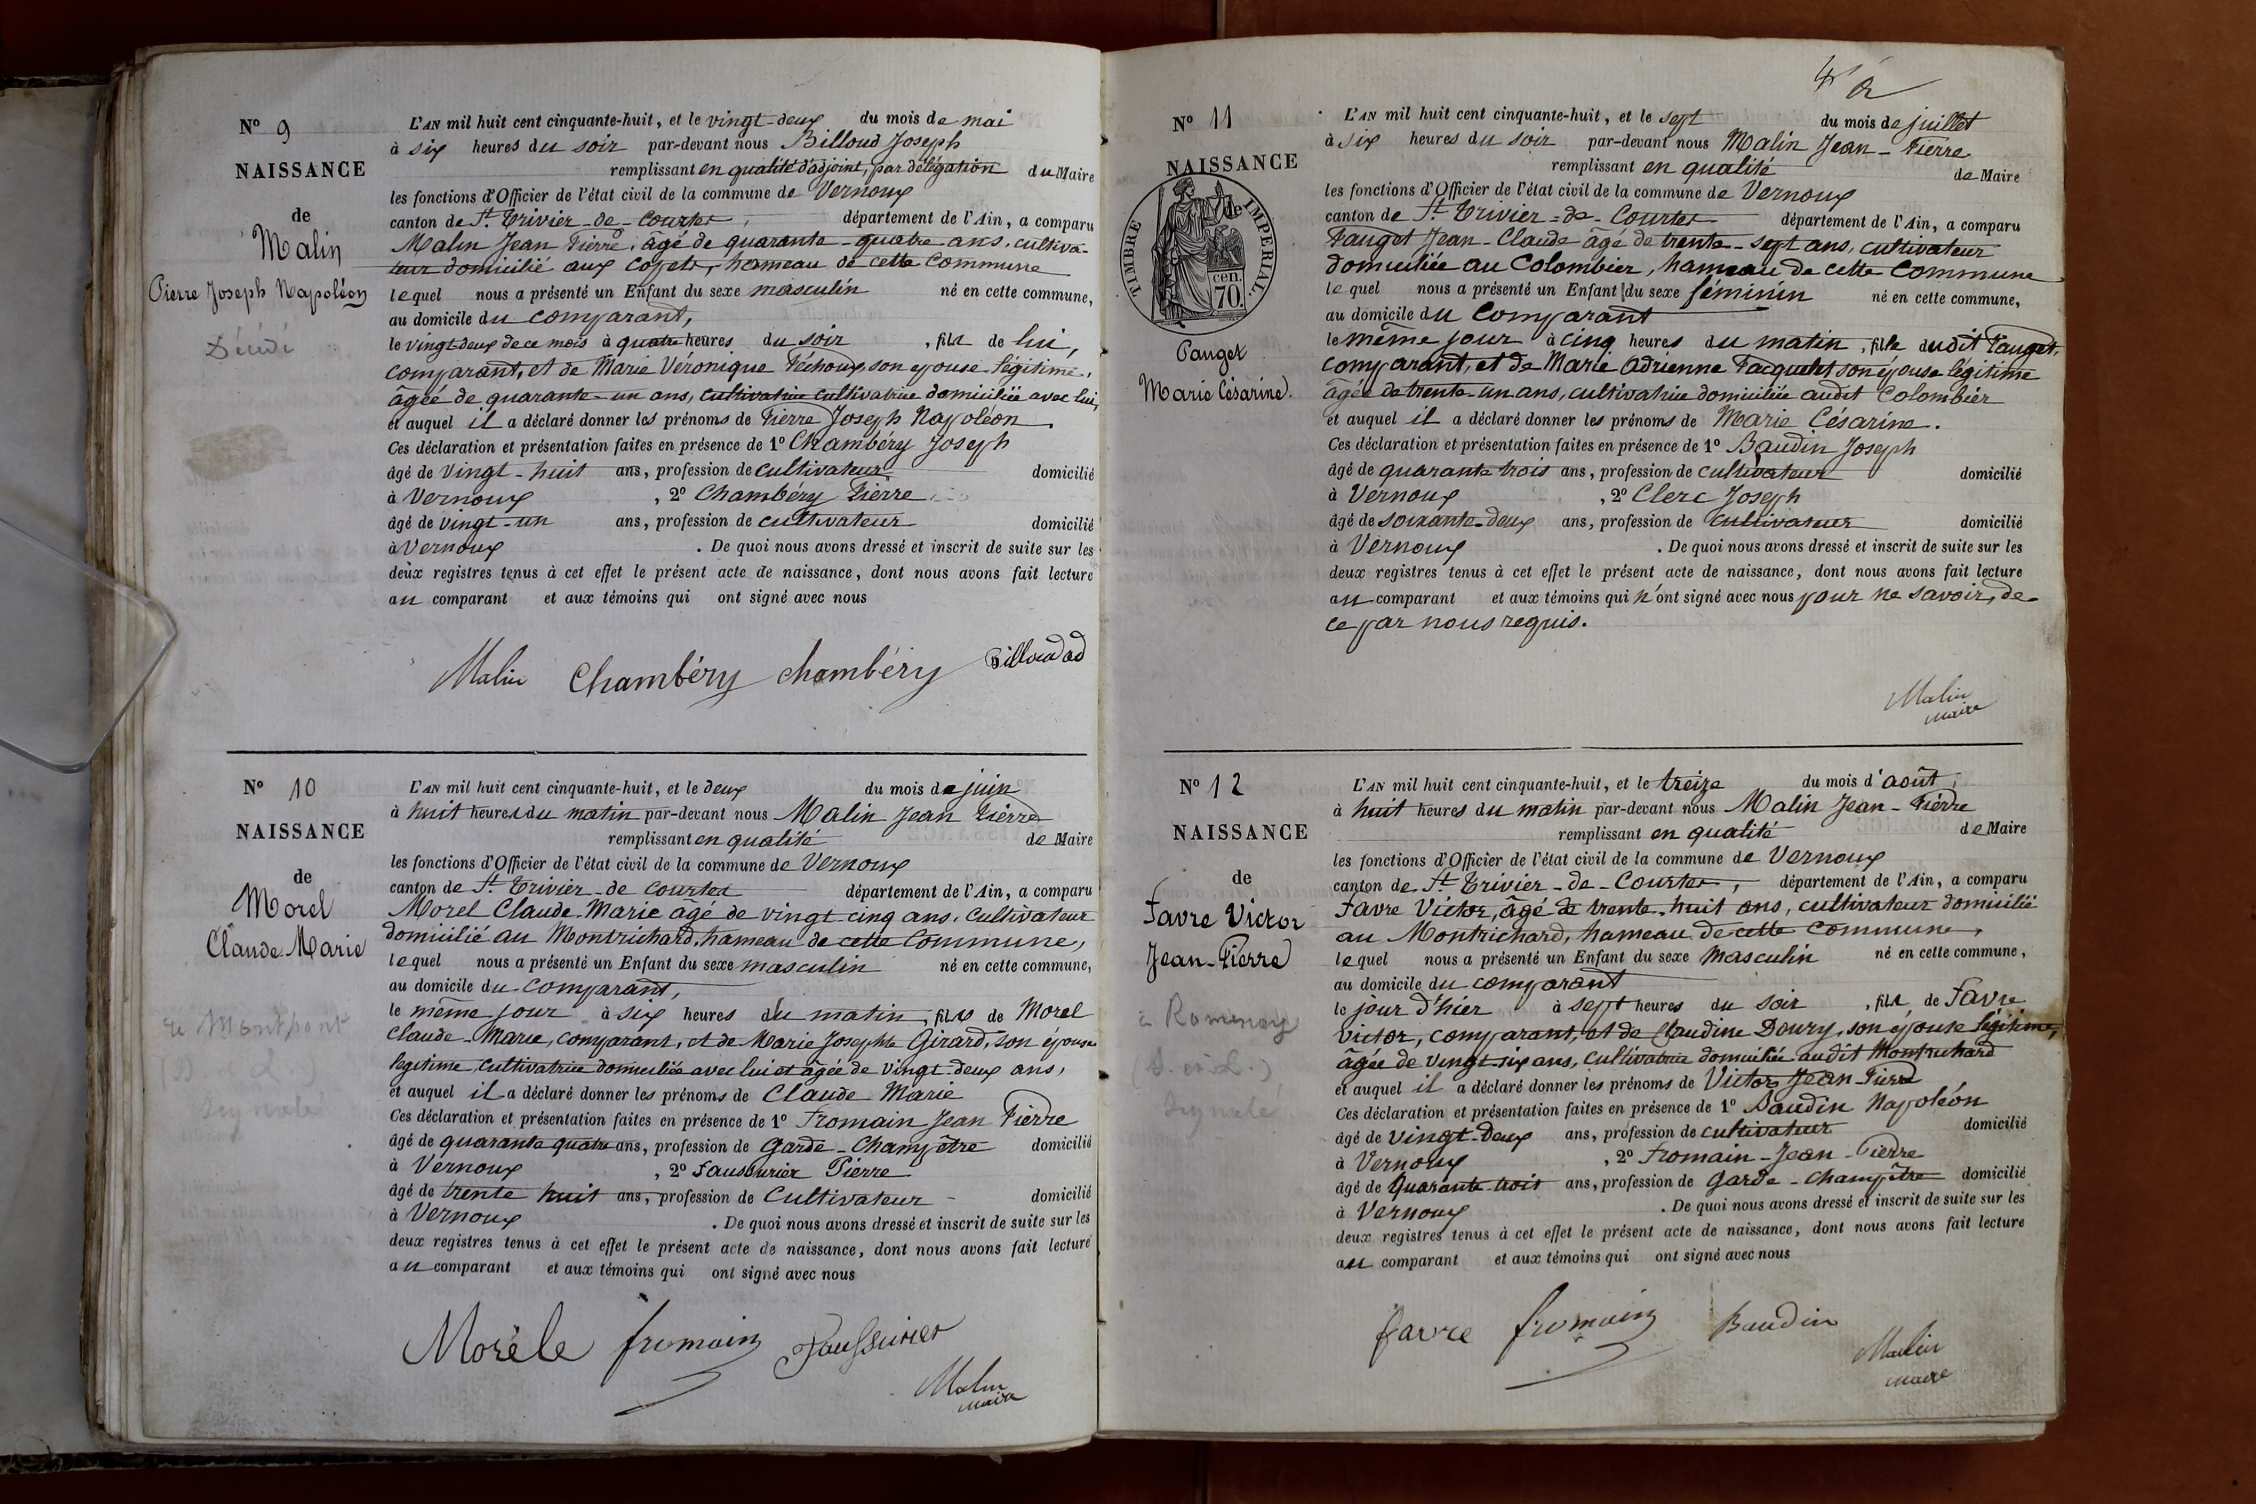 Nº 9
NAISSANCE
de
Malin
Pierre Joseph Napoléon
Décédé
L'AN mil huit cent cinquante-huit, et le vingt-deux du mois de mai
à six heures du soir par-devant nous Billoud Joseph
remplissant en qualité d'adjoint, par délégation du Maire
les fonctions d'Officier de l'état civil de la commune de Vernoux
canton de St Trivier-de-Courtes, département de l'Ain, a comparu
Malin Jean Pierre, âgé de quarante-quatre ans, cultiva-
teur domicilié aux Copets, hameau de cette Commune
lequel nous a présenté un Enfant du sexe masculin né en cette commune,
au domicile du comparant,
le vingt-deux de ce mois à quatre heures du soir, fils de lui,
comparant, et de Marie Véronique Péchoux, son épouse légitime,
âgée de quarante-un ans, cultivatrice cultivatrice domiciliée avec lui,
et auquel il a déclaré donner les prénoms de Pierre Joseph Napoléon.
Ces déclaration et présentation faites en présence de 1º Chambéry Joseph
âgé de vingt-huit ans, profession de cultivateur domicilié
à Vernoux, 2º Chambéry Pierre
âgé de vingt-un ans, profession de cultivateur domicilié
à Vernoux. De quoi nous avons dressé et inscrit de suite sur les
deux registres tenus à cet effet le présent acte de naissance, dont nous avons fait lecture
au comparant et aux témoins qui ont signé avec nous
Malin Chambéry Chambéry Billoud ad
Nº 10
NAISSANCE
de
Morel
Claude Marie
de Montpont
L'AN mil huit cent cinquante-huit, et le deux du mois de juin
à huit heures du matin par-devant nous Malin Jean Pierre
remplissant en qualité de Maire
les fonctions d'Officier de l'état civil de la commune de Vernoux
canton de St Trivier-de Courtes département de l'Ain, a comparu
Morel Claude-Marie âgé de vingt cinq ans, Cultivateur
domicilié au Montrichard, hameau de cette Commune,
lequel nous a présenté un Enfant du sexe masculin né en cette commune,
au domicile du comparant,
le même jour à six heures du matin, fils de Morel
Claude-Marie, comparant, et de Marie Josephte Girard, son épouse
légitime, cultivatrice domiciliée avec lui et âgée de vingt-deux ans,
et auquel il a déclaré donner les prénoms de Claude Marie
Ces déclaration et présentation faites en présence de 1º Fromain Jean Pierre
âgé de quarante quatre ans, profession de Garde-Champêtre domicilié
à Vernoux, 2º Faussurier Pierre
âgé de trente huit ans, profession de Cultivateur domicilié
à Vernoux. De quoi nous avons dressé et inscrit de suite sur les
deux registres tenus à cet effet le présent acte de naissance, dont nous avons fait lecture
au comparant et aux témoins qui ont signé avec nous
Morèle fromain Faussurier
Malin
maire
Nº 11
NAISSANCE
de
TIMBRE IMPERIAL
70 cen.
Pauget
Marie Césarine.
L'AN mil huit cent cinquante-huit, et le sept du mois de juillet
à six heures du soir par-devant nous Malin Jean-Pierre
remplissant en qualité de Maire
les fonctions d'Officier de l'état civil de la commune de Vernoux
canton de St Trivier-de-Courtes département de l'Ain, a comparu
Pauget Jean-Claude âgé de trente-sept ans, cultivateur
domiciliée au Colombier, hameau de cette Commune
lequel nous a présenté un Enfant du sexe féminin né en cette commune,
au domicile du Comparant
le même jour à cinq heures du matin, fille dudit Pauget,
comparant, et de Marie Adrienne Pacquelet son épouse légitime
âgée de trente-un ans, cultivatrice domiciliée audit Colombier
et auquel il a déclaré donner les prénoms de Marie Césarine.
Ces déclaration et présentation faites en présence de 1º Baudin Joseph
âgé de quarante trois ans, profession de cultivateur domicilié
à Vernoux, 2º Clerc Joseph
âgé de soixante-deux ans, profession de cultivateur domicilié
à Vernoux. De quoi nous avons dressé et inscrit de suite sur les
deux registres tenus à cet effet le présent acte de naissance, dont nous avons fait lecture
au comparant et aux témoins qui n'ont signé avec nous pour ne savoir, de
ce par nous requis.
Malin
maire
Nº 12
NAISSANCE
de
Favre Victor
Jean-Pierre
à Romenay
(S. et L.)
Signalé
L'AN mil huit cent cinquante-huit, et le treize du mois d'août,
à huit heures du matin par-devant nous Malin Jean-Pierre
remplissant en qualité de Maire
les fonctions d'Officier de l'état civil de la commune de Vernoux
canton de St Trivier-de-Courtes, département de l'Ain, a comparu
Favre Victor, âgé de trente-huit ans, cultivateur domicilié
au Montrichard, hameau de cette commune,
lequel nous a présenté un Enfant du sexe masculin né en cette commune,
au domicile du comparant
le jour d'hier à sept heures du soir, fils de Favre
Victor, comparant, et de Claudine Doury, son épouse légitime,
âgée de vingt-six ans, cultivatrice domiciliée audit Montrichard
et auquel il a déclaré donner les prénoms de Victor Jean-Pierre
Ces déclaration et présentation faites en présence de 1º Baudin Napoléon
âgé de vingt-deux ans, profession de cultivateur domicilié
à Vernoux, 2º Fromain-Jean-Pierre
âgé de Quarante-trois ans, profession de garde-champêtre domicilié
à Vernoux. De quoi nous avons dressé et inscrit de suite sur les
deux registres tenus à cet effet le présent acte de naissance, dont nous avons fait lecture
au comparant et aux témoins qui ont signé avec nous
favre fromain Baudin
Malin
maire